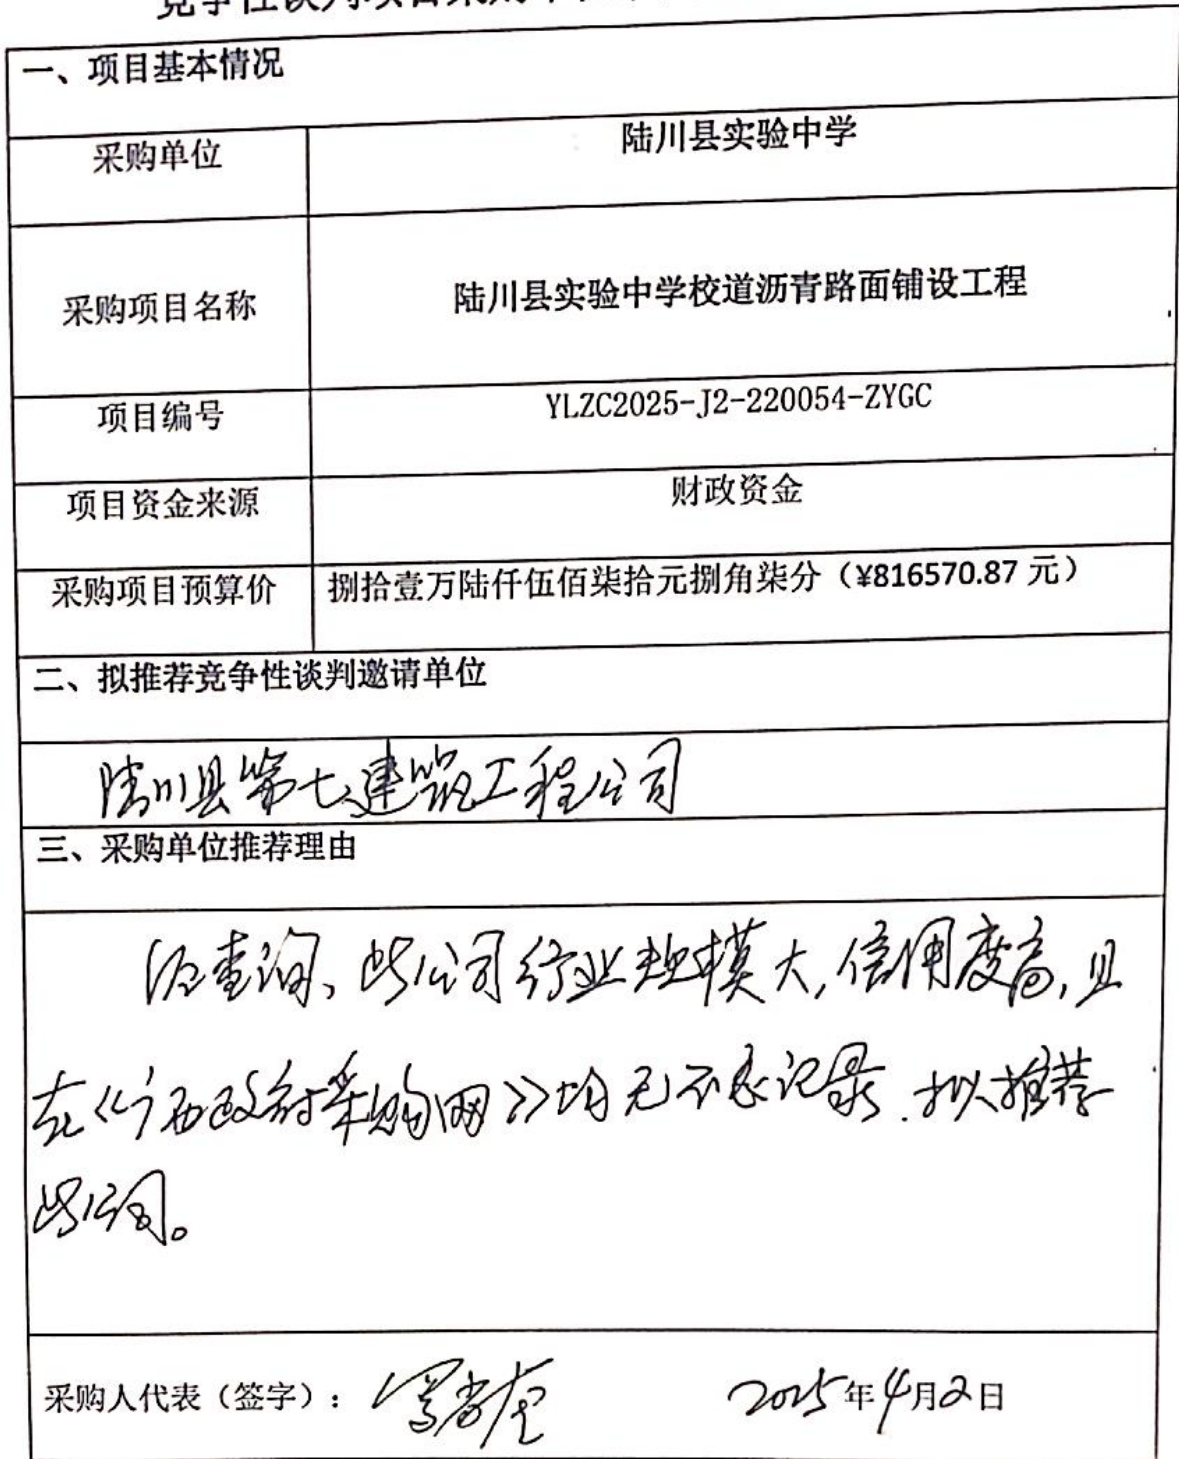 一、项目基本情况
采购单位 陆川县实验中学
采购项目名称 陆川县实验中学校道沥青路面铺设工程
项目编号 YLZC2025-J2-220054-ZYGC
项目资金来源 财政资金
采购项目预算价 捌拾壹万陆仟伍佰柒拾元捌角柒分（¥816570.87 元）
二、拟推荐竞争性谈判邀请单位
陆川县第七建筑工程公司
三、采购单位推荐理由
经查询、此公司行业规模大,信用度高,且
在《广西政府采购网》均无不良记录.拟推荐
此公司。
采购人代表（签字）: 2025年4月2日